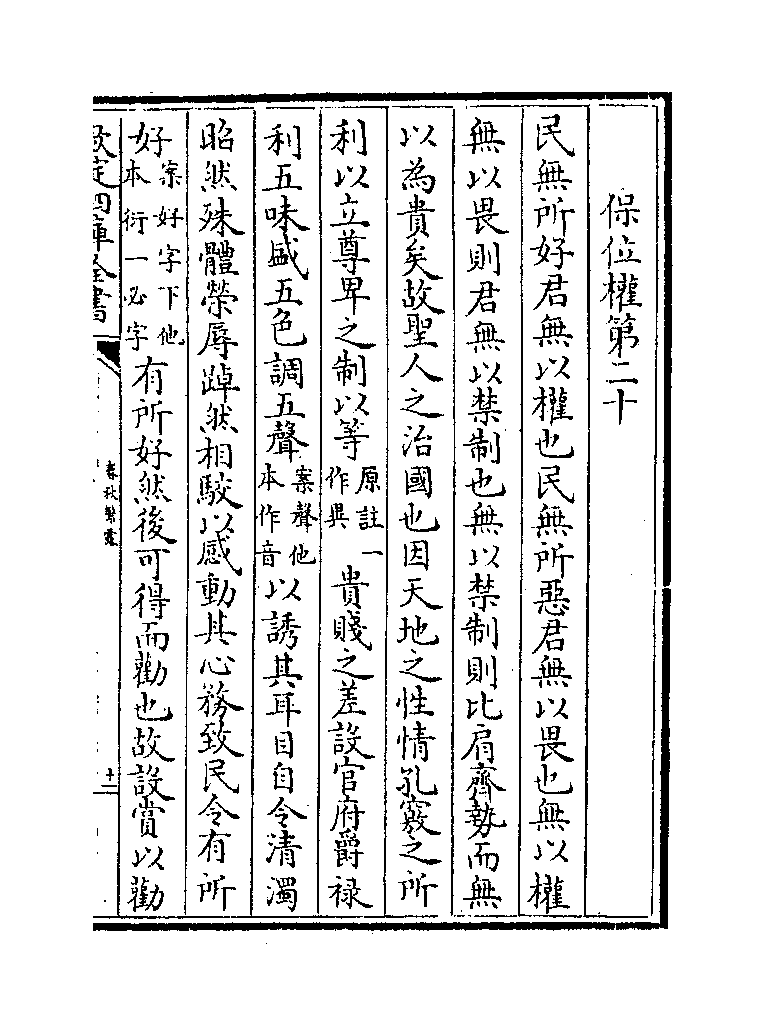 保位權第二十
民無所好君無以權也民無所惡君無以畏也無以權
無以畏則君無以禁制也無以禁制則比肩齊勢而無
以為貴矣故聖人之治國也因天地之性情孔竅之所
利以立尊卑之制以等原註一作異貴賤之差設官府爵祿
利五味盛五色調五聲案聲他本作音以誘其耳目自令清濁
昭然殊體榮辱踔然相駮以感動其心務致民令有所
好案好字下他本衍一必字有所好然後可得而勸也故設賞以勸
欽定四庫全書
春秋繁露
十二